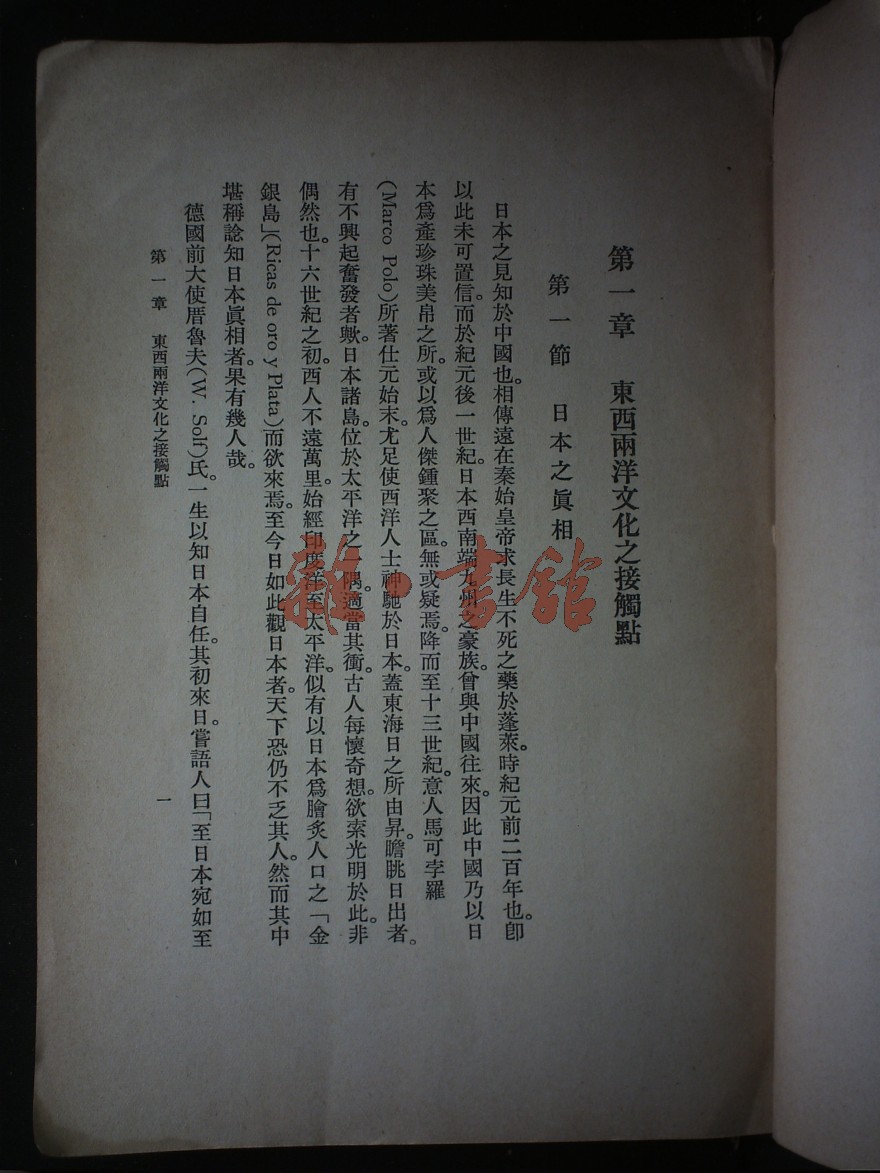 第一章　東西兩洋文化之接觸點
第一節　日本之眞相
日本之見知於中國也。相傳遠在秦始皇帝求長生不死之藥於蓬萊。時紀元前二百年也。卽
以此未可置信。而於紀元後一世紀。日本西南端九州之豪族。曾與中國往來。因此中國乃以日
本爲產珍珠美帛之所。或以爲人傑鍾聚之區。無或疑焉。降而至十三世紀。意人馬可孛羅
(Marco Polo)所著仕元始末。尤足使西洋人士神馳於日本。蓋東海日之所由昇。瞻眺日出者。
有不興起奮發者歟。日本諸島。位於太平洋之一隅。適當其衝。古人每懷奇想。欲索光明於此。非
偶然也。十六世紀之初。西人不遠萬里。始經印度洋至太平洋。似有以日本爲膾炙人口之「金
銀島」(Ricas de oro y Plata)而欲來焉。至今日如此觀日本者。天下恐仍不乏其人。然而其中
堪稱諗知日本眞相者。果有幾人哉。
德國前大使厝魯夫(W. Solf)氏。一生以知日本自任。其初來日。嘗語人曰「至日本宛如至
第一章　東西兩洋文化之接觸點
一
雜·書館